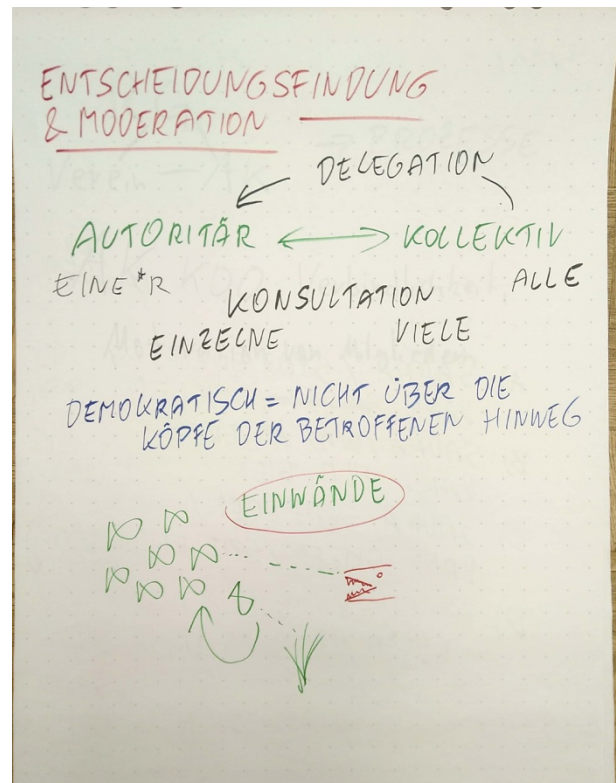 ENTSCHEIDUNGSFINDUNG
& MODERATION
DELEGATION
AUTORITÄR ↔ KOLLEKTIV
EINE*R
ALLE
KONSULTATION
EINZELNE VIELE
DEMOKRATISCH = NICHT ÜBER DIE
KÖPFE DER BETROFFENEN HINWEG
EINWÄNDE